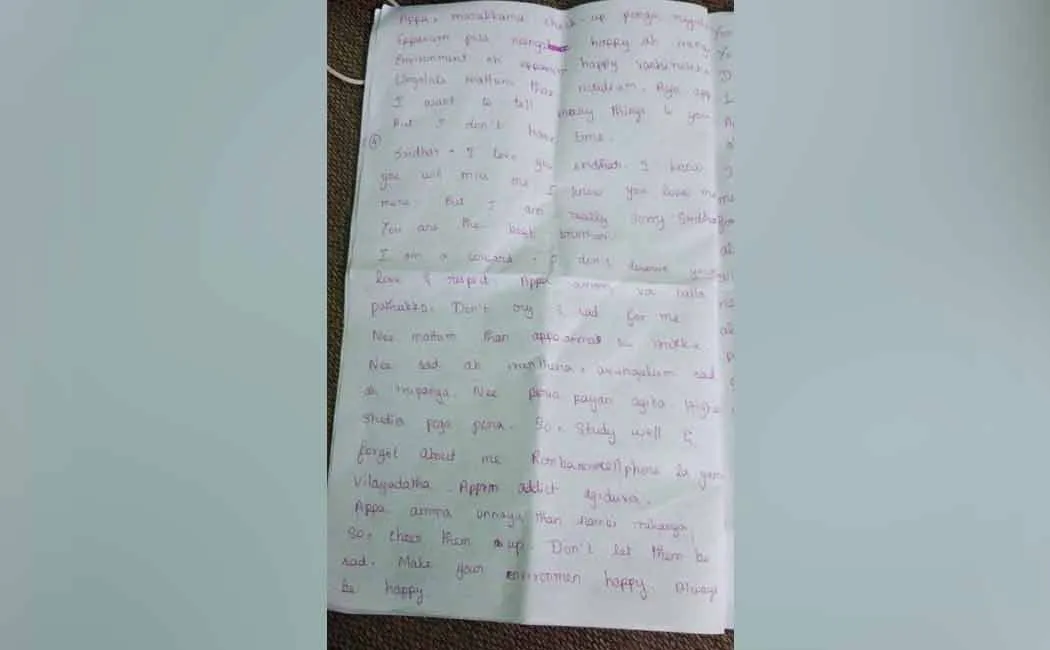 Appa, marakkama check-up ponga
Eppavum pola happy ah irunga
Environment ah eppavum happy
mattum than
I want to tell many things to you
But I don't have time.
④
Sridhar - I love you sridhar. I know
you will miss me I know you love me
more. But I am really sorry Sridhar
You are the best brother.
I am a coward. I don't deserve your
love & respect. Appa amma va nalla
pathukko. Don't cry & sad for me
Nee mattum than appa amma ku irukka
Nee sad ah irunthena, avangalum sad
ah irupanga. Nee periya payan agita. Higher
studies poga pora. So, Study well &
forget about me Romba cellphone la game
vilayadatha. Apprm addict agiduva.
Appa amma unnaya than nambi irukanga,
So, cheer them up. Don't let them be
sad. Make your environmen happy. Always
be happy.